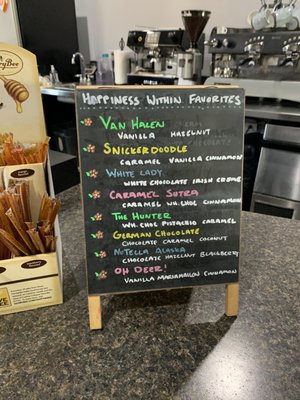 Happiness Within Favorites
Van Halen
Vanilla Hazelnut
Snickerdoodle
Caramel Vanilla Cinnamon
White Lady
White Chocolate Irish Creme
Caramel Sutra
Caramel Wh. Choc Cinnamon
The Hunter
Wh. Choc Pistachio Caramel
German Chocolate
Chocolate Caramel Coconut
Nutella Alaska
Chocolate Hazelnut Blackberry
Oh Deer!
Vanilla Marshmallow Cinnamon